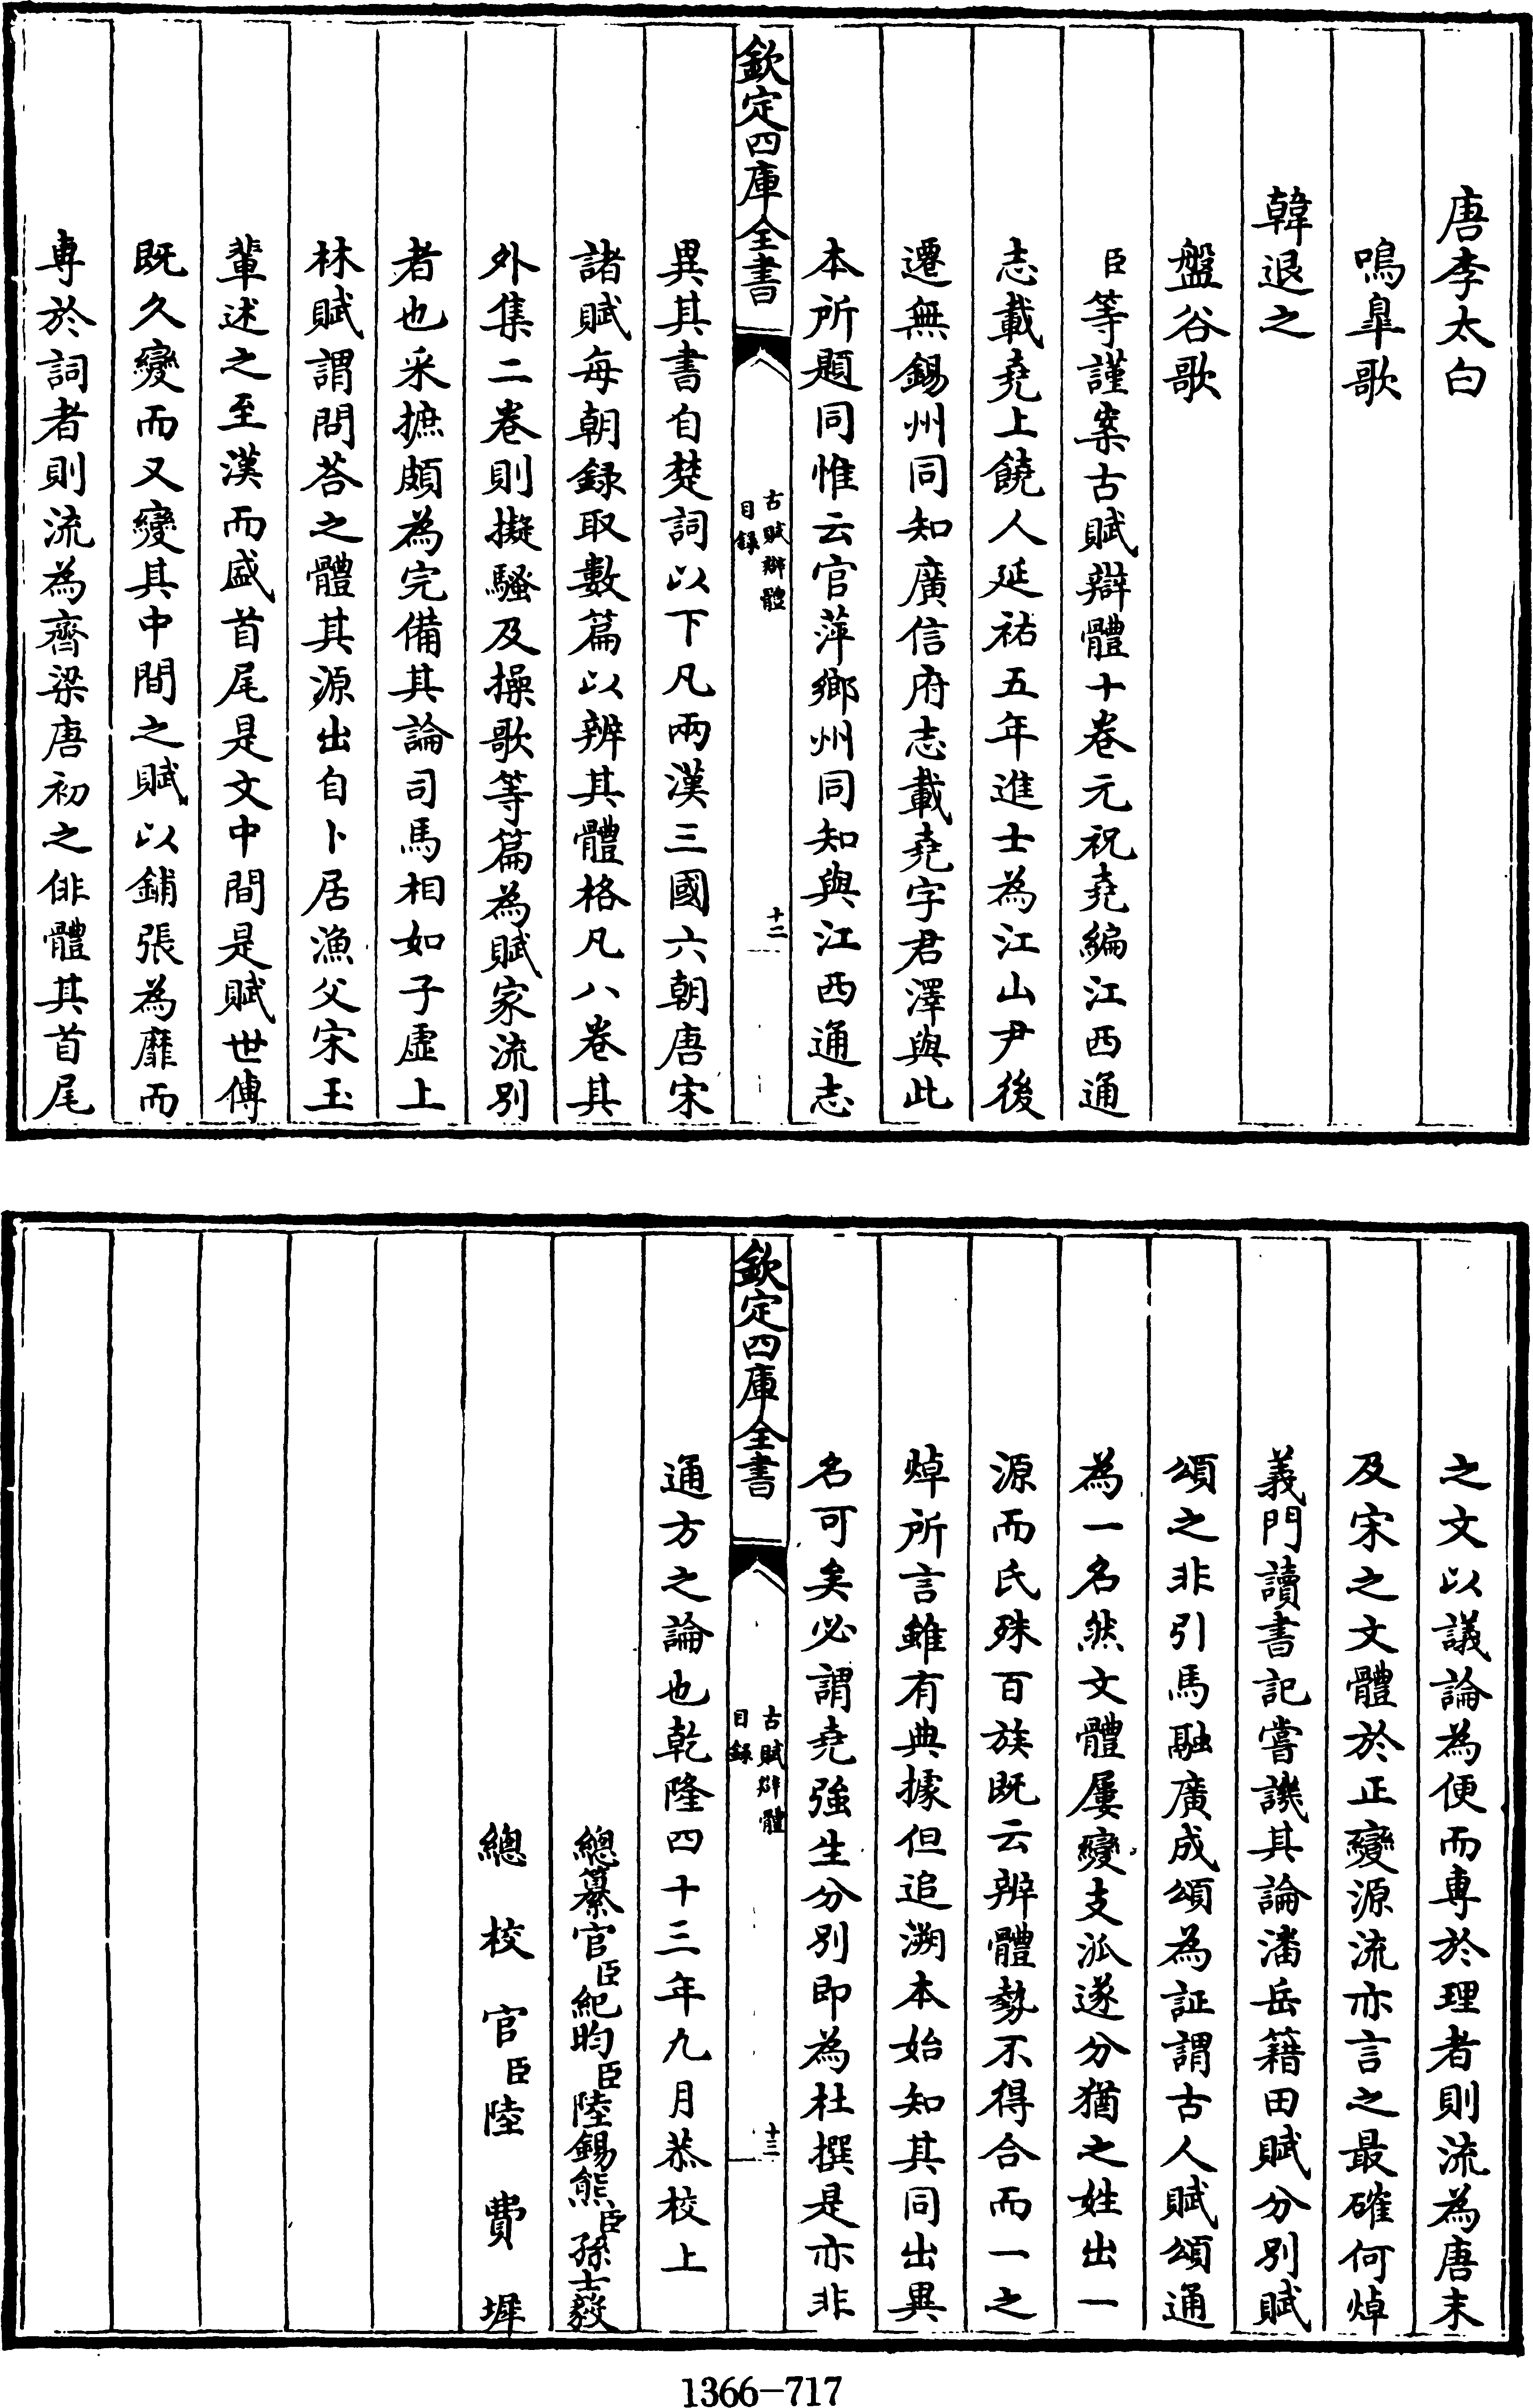 唐李太白
鳴臯歌
韓退之
盤谷歌
臣等謹案古賦辯體十卷元祝堯編江西通
志載堯上饒人延祐五年進士為江山尹後
遷無錫州同知廣信府志載堯字君澤與此
本所題同惟云官萍鄉州同知與江西通志
欽定四庫全書
古賦辯體
目録
十二
異其書自楚詞以下凡兩漢三國六朝唐宋
諸賦每朝録取數篇以辨其體格凡八卷其
外集二卷則擬騷及操歌等篇為賦家流别
者也采摭頗為完備其論司馬相如子虛上
林賦謂問荅之體其源出自卜居漁父宋玉
輩述之至漢而盛首尾是文中間是賦世傳
既久變而又變其中間之賦以鋪張為靡而
專於詞者則流為齊梁唐初之俳體其首尾
之文以議論為便而專於理者則流為唐末
及宋之文體於正變源流亦言之最確何焯
義門讀書記嘗譏其論潘岳籍田賦分别賦
頌之非引馬融廣成頌為証謂古人賦頌通
為一名然文體屢變支派遂分猶之姓出一
源而氏殊百族既云辨體勢不得合而一之
焯所言雖有典據但追溯本始知其同出異
名可矣必謂堯強生分别即為杜撰是亦非
欽定四庫全書
古賦辯體
目録
十三
通方之論也乾隆四十三年九月恭校上
總纂官臣紀昀臣陸錫熊臣孫士毅
總校官臣陸費墀
1366-717